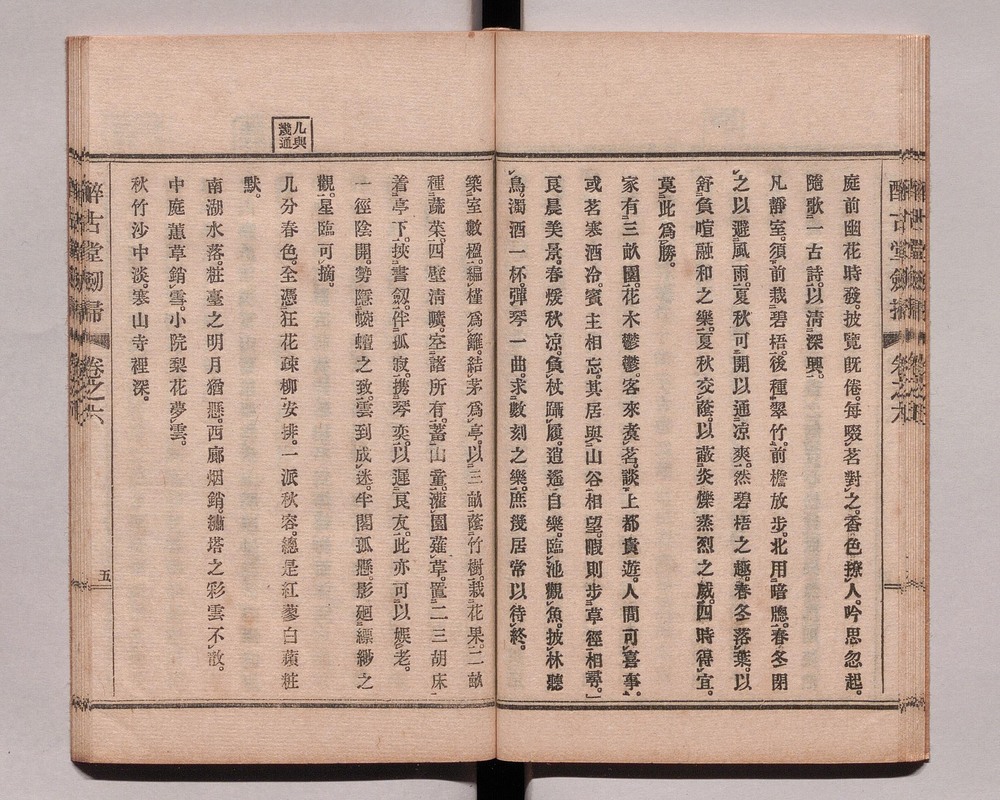 庭前幽花時發。披覽既倦。每啜茗對之。香色撩人。吟思忽起。
隨歌一古詩。以清深興。
凡靜室。須前栽碧梧。後種翠竹。前檐放步。北用暗牕。春冬閉
之以避風雨。夏秋可開以通凉爽。然碧梧之趣。春冬落葉。以
舒負喧融和之樂。夏秋交蔭。以蔽炎爍蒸烈之威。四時得宜。
莫此爲勝。
家有三畝園。花木鬱鬱。客來煑茗。談上都貴遊。人間可喜事。
或茗寒酒冷。賓主相忘。其居與山谷相望。暇則步草徑相尋。
良晨美景。春煖秋凉。負杖躡履。逍遙自樂。臨池觀魚。披林聽
鳥。濁酒一杯。彈琴一曲。求數刻之樂。庶幾居常以待終。
築室數楹。編槿爲籬。結茅爲亭。以三畝蔭竹樹。栽花果。二畝
種蔬菜。四壁清曠。空諸所有。蓄山童。灌園薙草。置二三胡床
着亭下。挾書劔。伴孤寂。携琴奕。以遲良友。此亦可以娛老。
一徑陰開。勢隱蜿蟺之致。雲到成迷。半閣孤懸。影廻縹緲之
觀。星臨可摘。
几與幾通
几分春色。全憑狂花疎柳安排。一派秋容。總是紅蓼白蘋粧
默。
南湖水落。粧臺之明月猶懸。西廊烟銷。繡塔之彩雲不散。
中庭蕙草銷雪。小院梨花夢雲。
秋竹沙中淡。寒山寺裡深。
醉古堂劒掃 卷之六 五